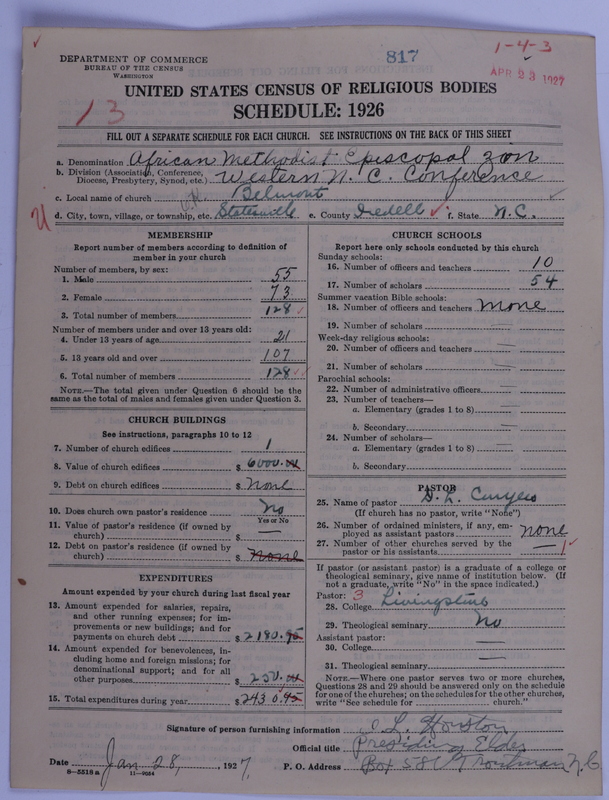 817
1-4-3
APR 23 1927
DEPARTMENT OF COMMERCE
BUREAU OF THE CENSUS
WASHINGTON
UNITED STATES CENSUS OF RELIGIOUS BODIES
13
SCHEDULE: 1926
FILL OUT A SEPARATE SCHEDULE FOR EACH CHURCH. SEE INSTRUCTIONS ON THE BACK OF THIS SHEET
a. Denomination African Methodist Episcopal Zion
b. Division (Association, Conference, Diocese, Presbytery, Synod, etc.) Western N. C. Conference
c. Local name of church Belmont
U d. City, town, village, or township, etc. Statesville e. County Iredell f. State N.C.
MEMBERSHIP
Report number of members according to definition of
member in your church
Number of members, by sex:
1. Male 55
2. Female 73
3. Total number of members 128
Number of members under and over 13 years old:
4. Under 13 years of age 21
5. 13 years old and over 107
6. Total number of members 128
NOTE.—The total given under Question 6 should be
same as the total of males and females given under Question 3.
CHURCH BUILDINGS
See instructions, paragraphs 10 to 12
7. Number of church edifices 1
8. Value of church edifices $ 6000.00
9. Debt on church edifices $ None
10. Does church own pastor's residence No
Yes or No
11. Value of pastor's residence (if owned by
church) $
12. Debt on pastor's residence (if owned by
church) $ None
EXPENDITURES
Amount expended by your church during last fiscal year
13. Amount expended for salaries, repairs,
and other running expenses; for im-
provements or new buildings; and for
payments on church debt $ 2180.95
14. Amount expended for benevolences, in-
cluding home and foreign missions; for
denominational support; and for all
other purposes $ 250.00
15. Total expenditures during year $ 2430.95
CHURCH SCHOOLS
Report here only schools conducted by this church
Sunday schools:
16. Number of officers and teachers 10
17. Number of scholars 54
Summer vacation Bible schools:
18. Number of officers and teachers None
19. Number of scholars
Week-day religious schools:
20. Number of officers and teachers
21. Number of scholars
Parochial schools:
22. Number of administrative officers
23. Number of teachers—
a. Elementary (grades 1 to 8)
b. Secondary
24. Number of scholars—
a. Elementary (grades 1 to 8)
b. Secondary
PASTOR
25. Name of pastor
(If church has no pastor, write "None")
26. Number of ordained ministers, if any, em-
ployed as assistant pastors None
27. Number of other churches served by the
pastor or his assistants 1
If pastor (or assistant pastor) is a graduate of a college or
theological seminary, give name of institution below. (If
not a graduate, write "No" in the space indicated.)
Pastor: 3
28. College Livingstone
29. Theological seminary No
Assistant pastor:
30. College
31. Theological seminary
NOTE.—Where one pastor serves two or more churches,
Questions 28 and 29 should be answered only on the schedule
for one of the churches; on the schedules for the other churches,
write "See schedule for church."
Signature of person furnishing information L. Houston
Official title Presiding Elder
Date Jan 28, 1927, P. O. Address Box 58 Troutman N.C
8—5518a 11—9084